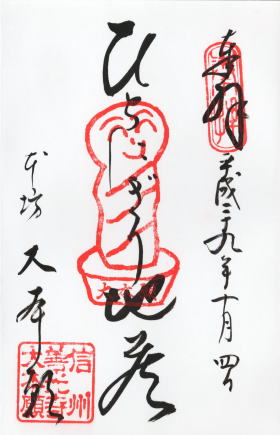 奉拝
平成二十九年十月四日
ひとにぎり地蔵
本坊
大本願
信州
善光寺
大本願